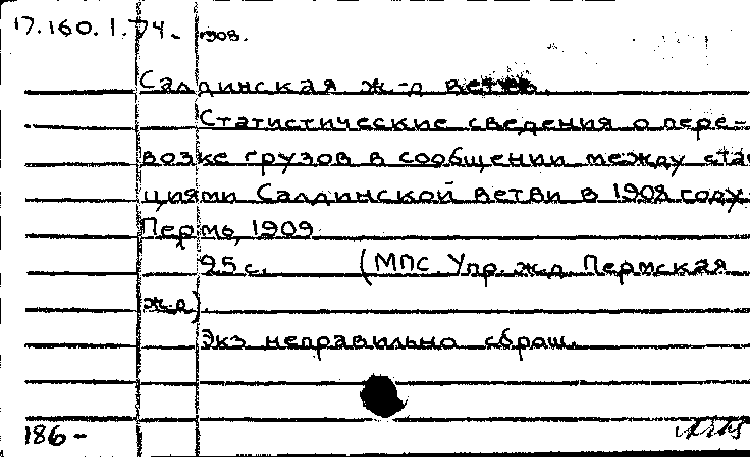 17.160.1.74. 1908.
Салдинская ж-д ветвь.
Статистические сведения о пере-
возке грузов в сообщении между ста
циями Салдинской ветви в 1908 году.
Пермь, 1909
95 с. (МПС. Упр. ж.д. Пермская
ж-д)
Экз неправильно сброш.
186-